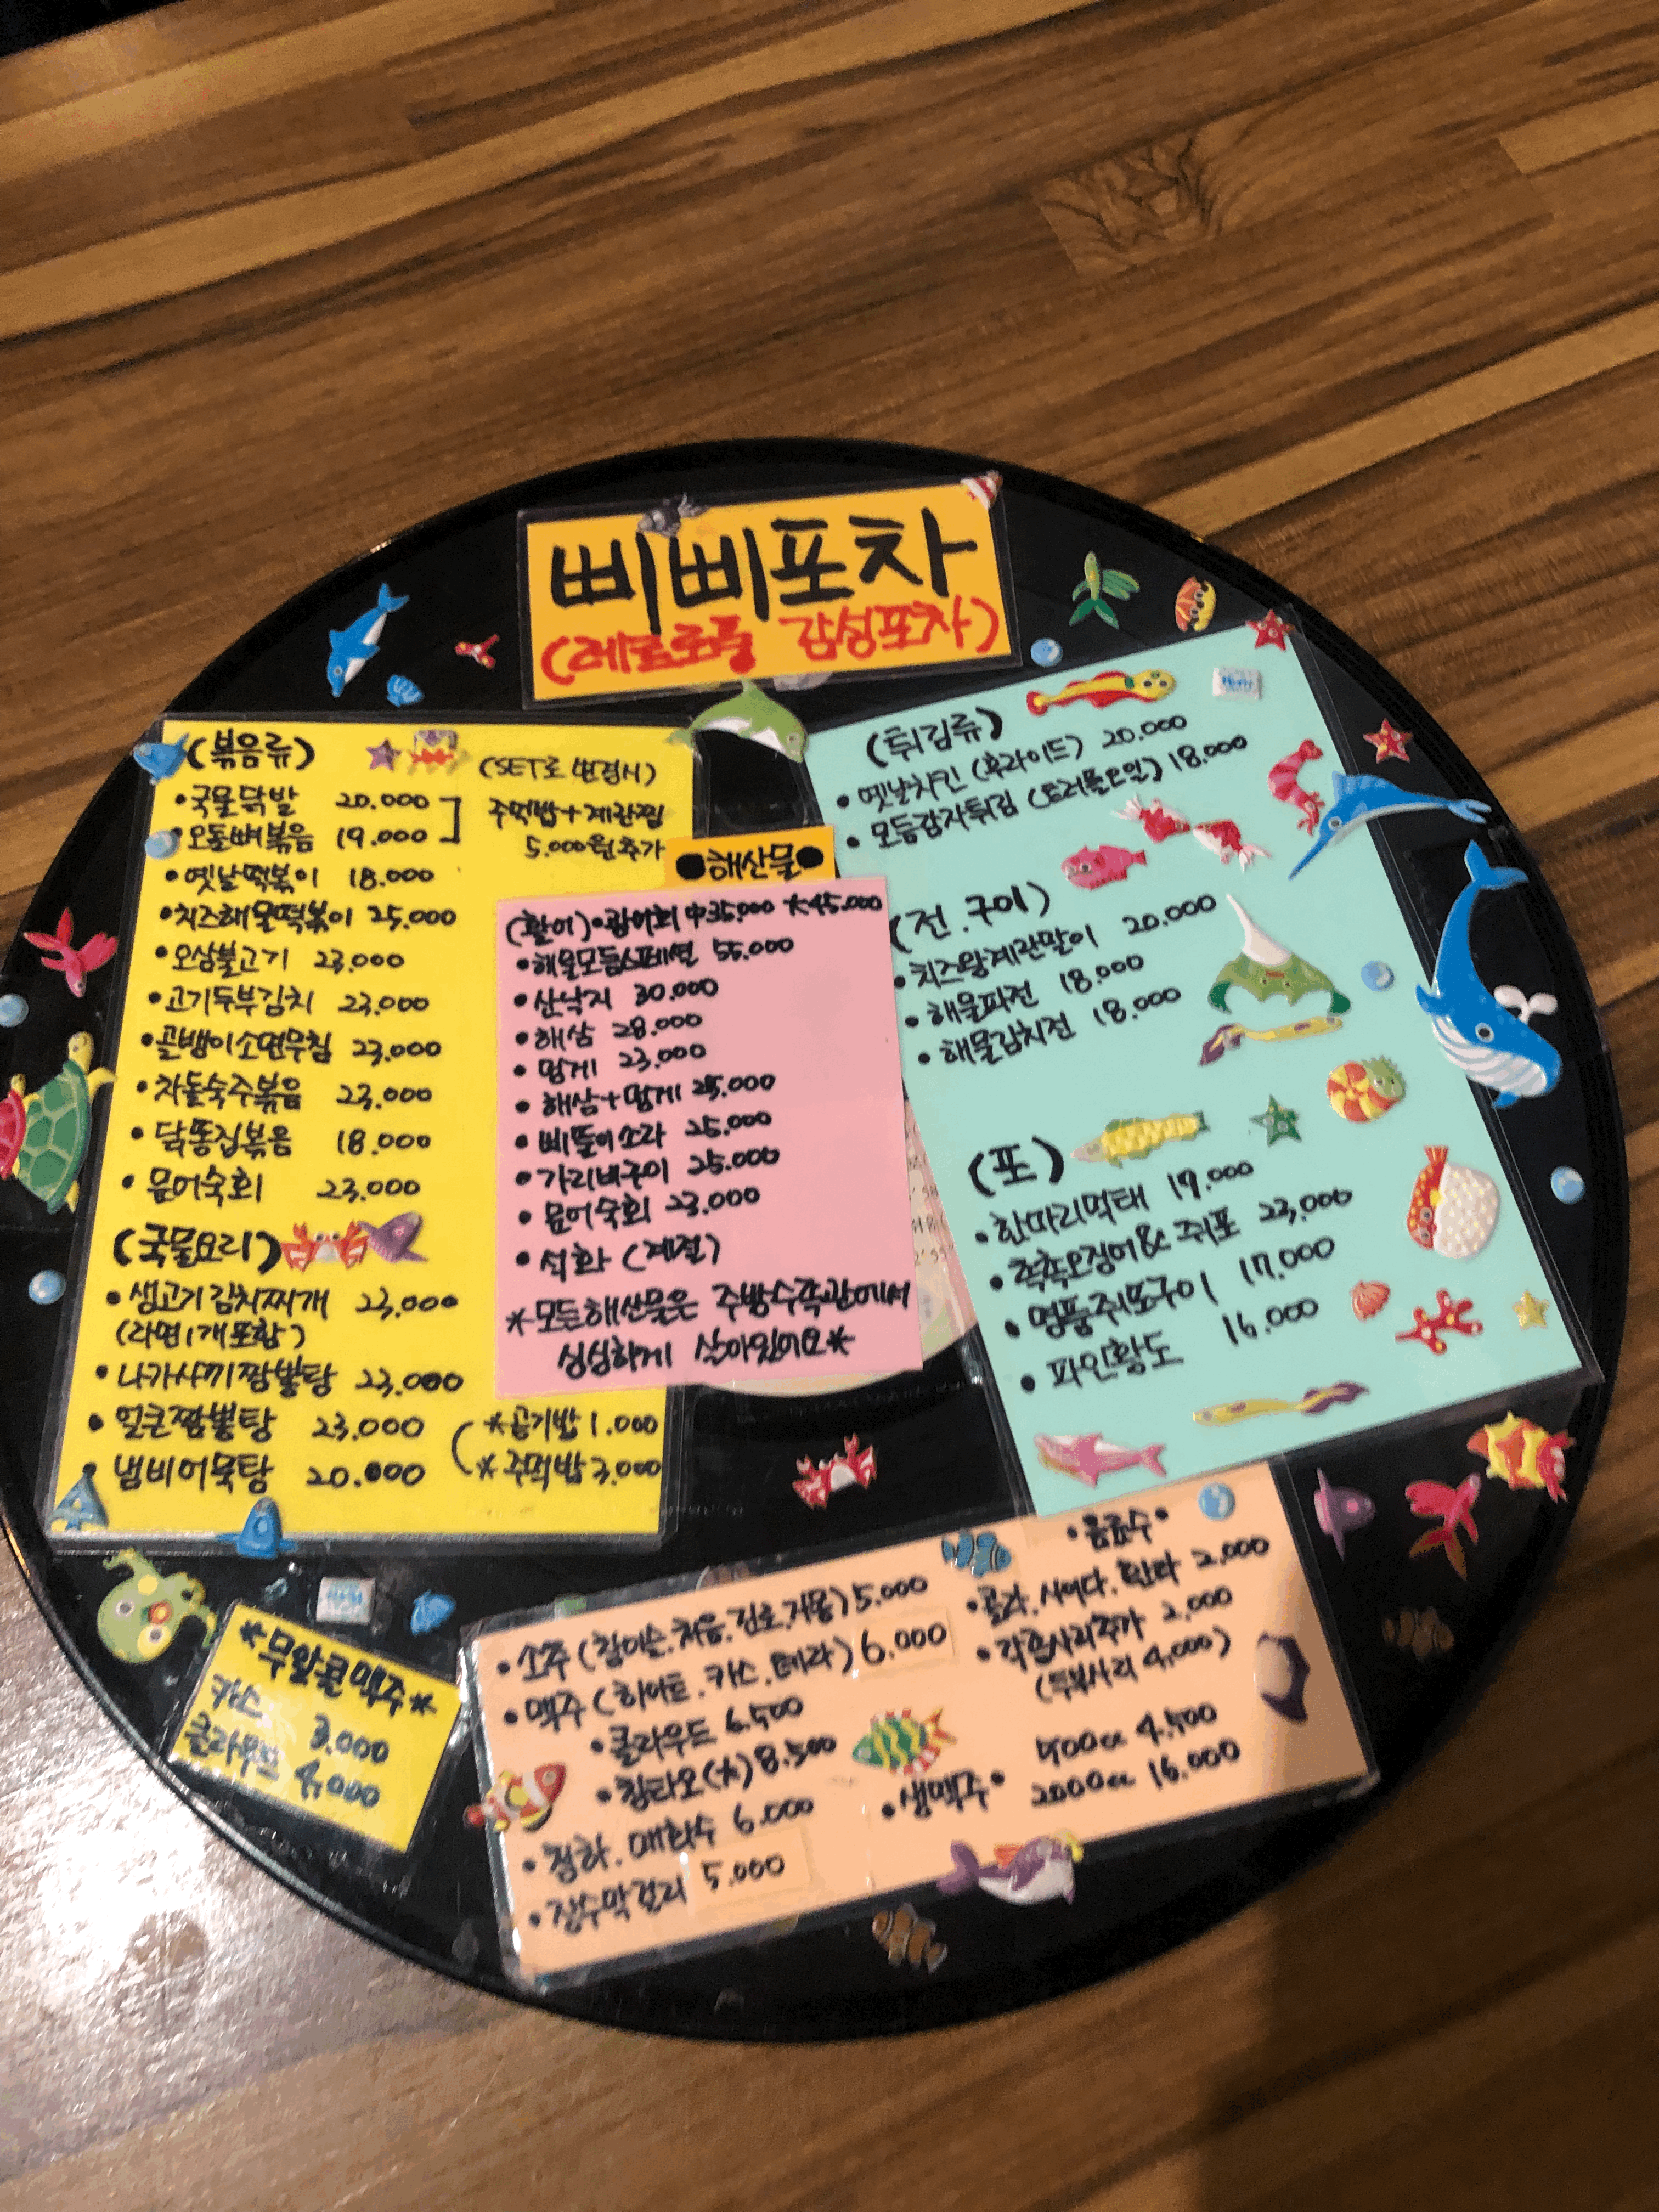 삐삐포차
(레트로풍 감성포차)
(볶음류)
(SET로 변경시)
주먹밥+계란찜
5.000원추가
•국물닭발 20.000
•오돌뼈볶음 19.000
•옛날떡볶이 18.000
•치즈해물떡볶이 25.000
•오삼불고기 23.000
•고기두부김치 23.000
•골뱅이소면무침 23.000
•차돌숙주볶음 23.000
•닭똥집볶음 18.000
•문어숙회 23.000
(국물요리)
•생고기김치찌개 23.000
(라면1개포함)
•나가사끼짬뽕탕 23.000
•얼큰짬뽕탕 23.000
•냄비어묵탕 20.000
*공기밥 1.000
*주먹밥 3.000
●해산물●
(활어)•광어회 中35.000 大45.000
•해물모듬스페셜 55.000
•산낙지 30.000
•해삼 28.000
•멍게 23.000
•해삼+멍게 25.000
•삐뚤이소라 25.000
•가리비구이 25.000
•문어숙회 23.000
•석화 (계절)
*모든해산물은 주방수족관에서
싱싱하게 살아있어요*
(튀김류)
•옛날치킨 (후라이드) 20.000
•모듬감자튀김 (트러플오일) 18.000
(전.구이)
•치즈왕계란말이 20.000
•해물파전 18.000
•해물김치전 18.000
(포)
•한마리먹태 19.000
•촉촉오징어& 쥐포 23,000
•명품쥐포구이 17.000
•파인황도 16.000
*무알콜맥주*
카스 3.000
클라우드 4,000
•소주 (참이슬.처음.진로.처음) 5.000
•맥주 (하이트.카스.테라) 6.000
•클라우드 6.500
•칭타오(大) 8.500
•청하.매화수 6.000
•장수막걸리 5.000
•음료수•
•콜라.사이다.환타 2,000
•각종사리추가 2,000
(두부사리 4,000)
•생맥주• 400cc 4.500
2000cc 16.000